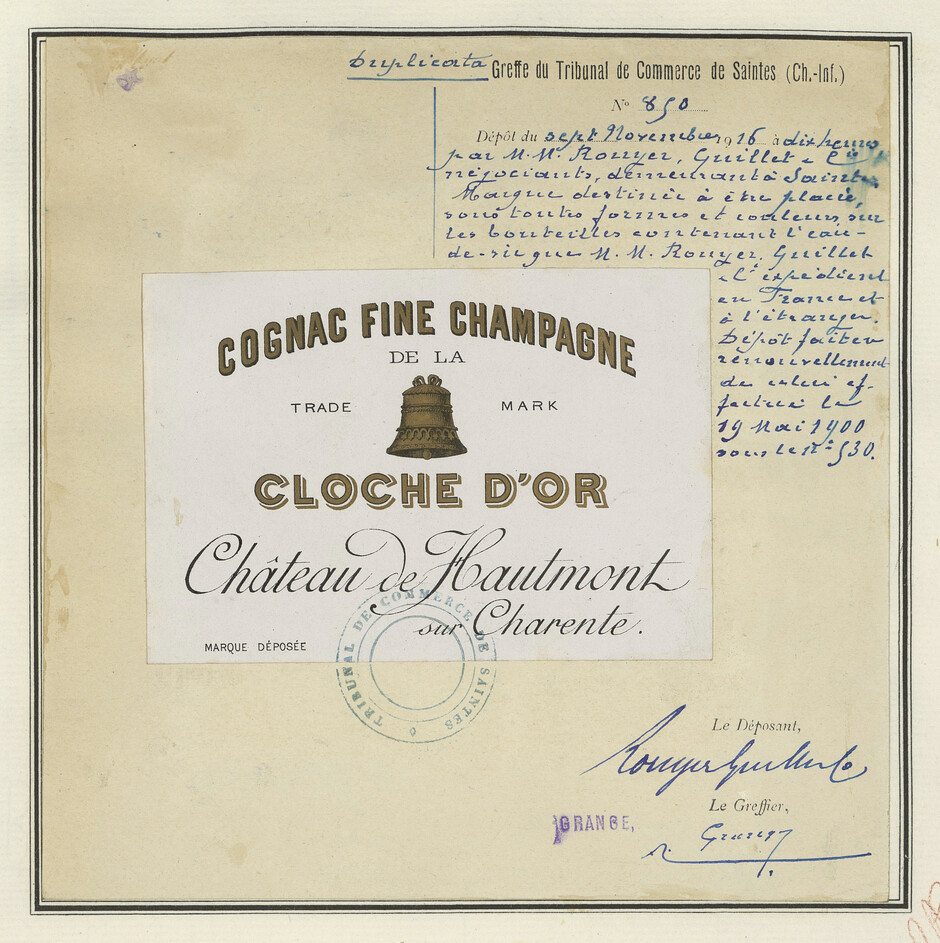 Duplicata Greffe du Tribunal de Commerce de Saintes (Ch.-Inf.)
N° 850
Dépôt du sept Novembre 1916 à dix heures
par M.M. Rouyer, Guillet & Cie
négociants, demeurant à Saintes
Marque destinée à être placée,
sous toutes formes et couleurs, sur
les bouteilles contenant l'eau-
de-vie que M.M. Rouyer, Guillet
& Cie expédient
en France et
à l'étranger.
Dépôt fait en
renouvellement
de celui ef-
fectué le
19 Mai 1900
sous le n° 530.
COGNAC FINE CHAMPAGNE
DE LA
TRADE MARK
CLOCHE D'OR
Château de Hautmont
sur Charente.
MARQUE DÉPOSÉE
TRIBUNAL DE COMMERCE DE SAINTES
Le Déposant,
Rouyer Guillet & Co
Le Greffier,
GRANGE,
Grange